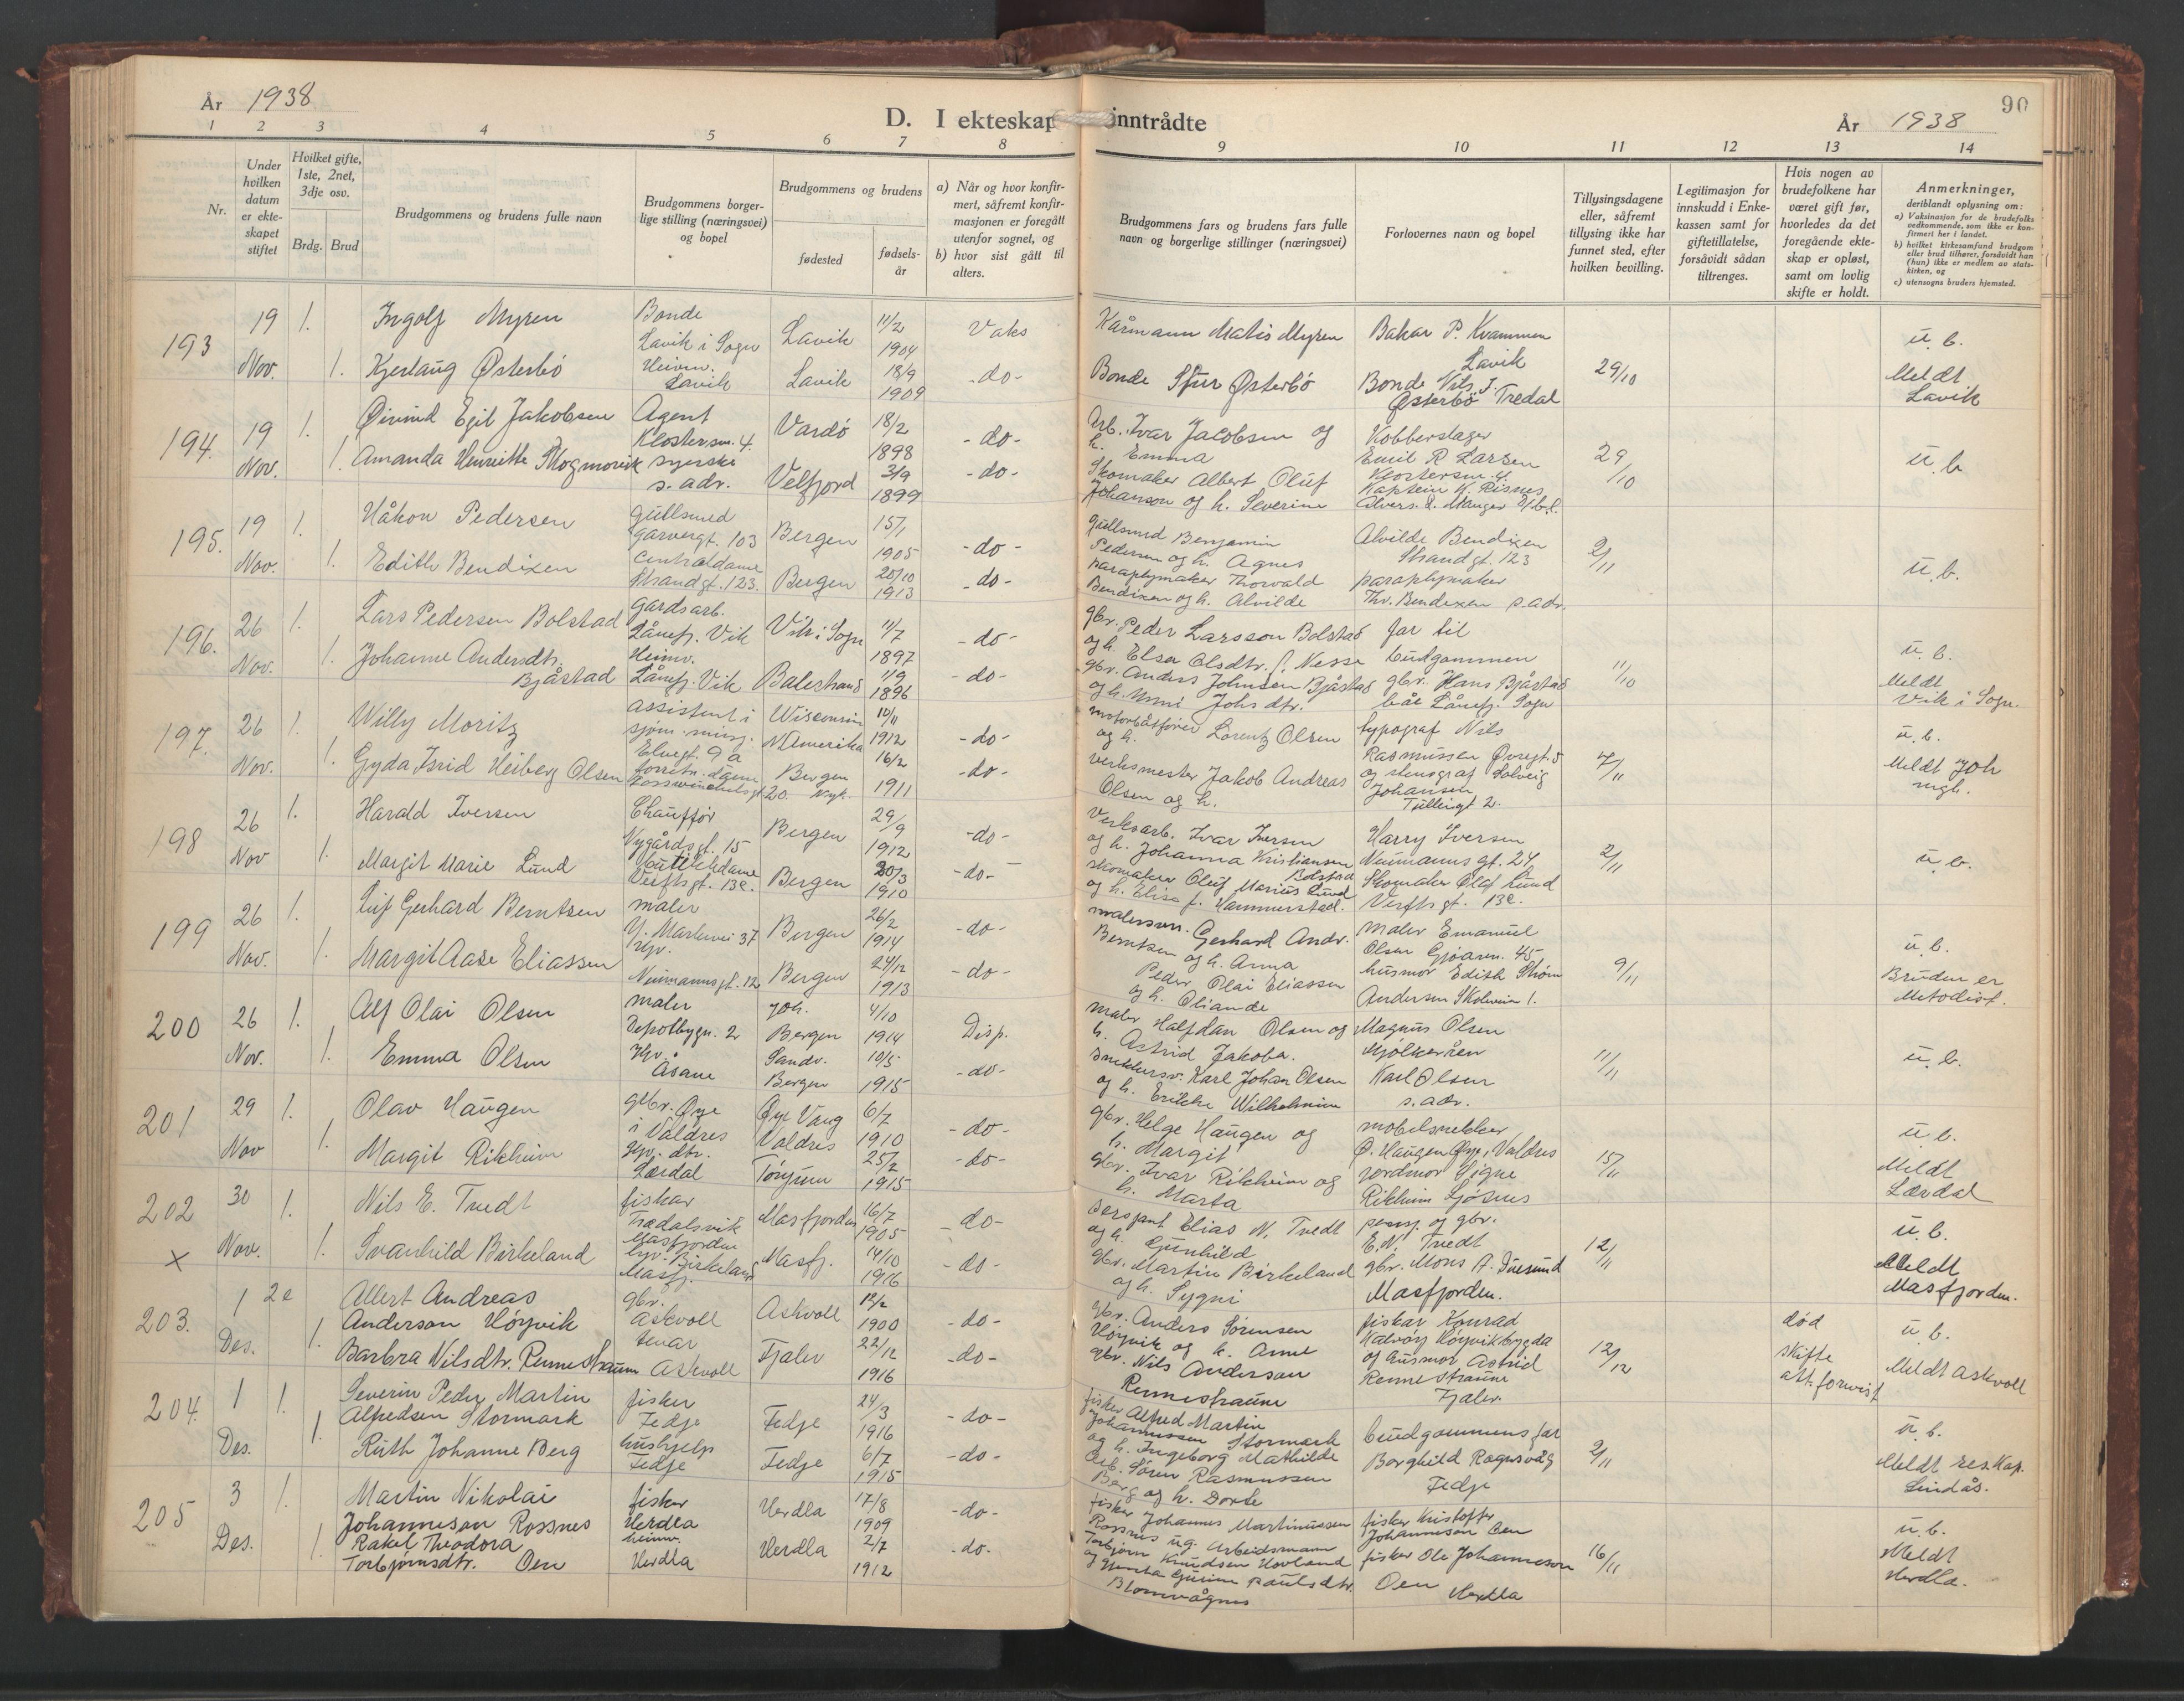 År 1938
D. I ekteskap inntrådte
År 1938
90
1 2 3 4 5 6 7 8 9 10 11 12 13 14
Nr.
Under hvilken datum er ekte-skapet stiftet
Hvilket gifte, 1ste, 2net, 3dje osv.
Brdg. Brud
Brudgommens og brudens fulle navn
Brudgommens borger-lige stilling (næringsvei) og bopel
Brudgommens og brudens
fødested
fødsels-år
a) Når og hvor konfir-mert, såfremt konfir-masjonen er foregått utenfor sognet, og
b) hvor sist gått til alters.
Brudgommens fars og brudens fars fulle navn og borgerlige stillinger (næringsvei)
Forlovernes navn og bopel
Tillysingsdagene eller, såfremt tillysing ikke har funnet sted, efter hvilken bevilling.
Legitimasjon for innskudd i Enke-kassen samt for giftetillatelse, forsåvidt sådan tiltrenges.
Hvis nogen av brudefolkene har været gift før, hvorledes da det foregående ekte-skap er opløst, samt om lovlig skifte er holdt.
Anmerkninger, deriblandt oplysning om:
a) Vaksinasjon for de brudefolks vedkommende, som ikke er kon-firmert her i landet.
b) hvilket kirkesamfund brudgom eller brud tilhører, forsåvidt han (hun) ikke er medlem av stats-kirken, og
c) utensogns bruders hjemsted.
193 19 Nov. 1. Ingolf Myren Bonde Lavik i Sogn Lavik 11/2 1904 Vaks Kårmann Matis Myren Bakar P. Kvammen Lavik 29/10 u. b.
1. Kjerlaug Østerbö Heimv. Lavik Lavik 18/9 1909 -do- Bonde Sjur Østerbö Bonde Nils J. Østerbö Tredal Meldt Lavik
194. 19 Nov. 1. Øivind Egil Jakobsen Agent Klostersm. 4. Vardö 18/2 1898 -do- Arb. Ivar Jacobsen og h. Emma Kobberslager Emil R Larsen Klostersm. 4. 29/10 u. b
1. Amanda Henriette syerske s. adr. Velfjord 3/9 1899 -do- Skomaker Albert Oluf Johanson og h. Severine Kaptein K. Risnes
195. 19 Nov. 1. Håkon Pedersen Gullsmed Garvergt. 103 Bergen 15/1 1905 -do- Gullsmed Benjamin Pedersen og h. Agnes Alvilde Bendixen Strandgt. 123 2/11 u. b.
1. Edith Bendixen Centraldame Strandgt. 123. Bergen 20/10 1913 -do- paraplymaker Thorvald Bendixen og h. Alvilde paraplymaker Thv. Bendixen s. adr.
196. 26 Nov. 1. Lars Pedersen Bolstad Gardsarb. Lånefj. Vik Vik i Sogn 11/7 1897 -do- gbr. Peder Larsson Bolstad og h. Elsa Olsdtr. f. Nesse far til brudgommen 11/10 u. b.
1. Johanne Andersdtr. Bjåstad Heimv. Lånefj. Vik Balestrand 1/9 1896 -do- gbr. Anders Johnsen Bjåstad og h. Johs dtr. gbr. Hans Bjåstad båe Lånefj. Sogn Meldt Vik i Sogn.
197. 26 Nov. 1. Willy Moritz assistent i sjøm. Elvegt. 9 a Wisconsin N Amerika 10/11 1912 -do- motorbåtfører Lorentz Olsen og h. typograf Nils Rasmussen Øvregt. 5 7/11 u. b.
1. Gyda Isrid Heiberg Olsen Bergen 16/2 1911 -do- verksmester Jakob Andreas Olsen og h. og stenograf Solveig Johansen Tullingt 2. Meldt Joh
198 26 Nov 1. Harald Iversen Chauffør Nygårdsgt. 15 Bergen 29/9 1912 -do- Verksarb. Ivar Iversen og h. Johanna Kristiansen Bolstad Harry Iversen Neumannsgt. 24 2/11 u. b.
1. Margit Marie Lund butikkdame Verftsgt. 13c. Bergen 20/3 1910 -do- skomaker Oluf Marius Lund og h. Elise f. Hammerstad. Skomaker Olaf Lund Verftsgt. 13c.
199 26 Nov. 1. Leif Gerhard Berntsen maler Y. Markevei 37 Bergen 26/2 1914 -do- malersvn. Gerhard Andr. Berntsen og h. Anna maler Emanuel Olsen Gjöarm. 45 9/11 u. b.
1. Margit Aase Eliassen hjv. Neumannsgt. 12 Bergen 24/12 1913 -do- Peder Olai Eliassen og h. Oliande husmor Edith Ström Andersen Skolem 1. Bruden er Metodist.
200 26 Nov. 1. Alf Olai Olsen maler Depotbygn. 2 Joh. Bergen 4/10 1914 Disp. maler Halfdan Olsen og h. Astrid Jakoba. Magnus Olsen Mjölkeråen 11/11 u. b.
1. Emma Olsen Hjv. Åsane Sandv. Bergen 10/5 1915 -do- snekkersv. Karl Johan Olsen og h. Erikke Wilhelmine Karl Olsen s. adr.
201 29 Nov 1. Olav Haugen gbr. Øye i Valdres Øye Vang Valdres 6/7 1910 -do- gbr. Helge Haugen og h. Margit mobelsnekker O. Haugen Øye, Valdres 15/11 u. b.
1. Margit Rikheim gbr. dtr. Lærdal Tönjum 25/2 1915 -do- gbr. Ivar Rikheim og h. Marta jordmor Signe Rikheim Meldt Lærdal
202 x 30 Nov. 1. Nils E. Tvedt fiskar Trædalsvik Masfjorden Masfjorden 16/7 1905 -do- sersjant Elias N. Tvedt og h. Gunhild pensj. og gbr. E. N. Tvedt 12/11 u. b.
1. Svanhild Birkeland hjv. Birkeland Masfj. Masfj. 14/10 1916 -do- gbr. Martin Birkeland og h. Sygni gbr. Mons A. Duesund Masfjorden. Meldt Masfjorden.
203. 1 Des. 2e Allert Andreas Anderson Höyvik gbr. Askvoll Askvoll 12/2 1900 -do- gbr. Anders Sörensen Höyvik og h. Anne fiskar Konrad Kalvöy Höyvikbygda 12/12 död skifte att. forevist u. b.
1. Barbra Nilsdtr. Rennestraum tenar Askvoll Fjaler 22/12 1916 -do- gbr. Nils Anderson Rennestraum og husmor Astrid Rennestraum Fjaler. Meldt Askvoll
204. 1 Des. 1. Severin Peder Martin Alfredsen Stormark fisker Fedje Fedje 24/3 1916 -do- fisker Alfred Martin Johannessen Stormark og h. Ingeborg Mathilde brudgommens far 2/11 u. b.
1. Ruth Johanne Berg hushjelp Fedje Fedje 6/7 1915 -do- arb. Sören Rasmussen Berg og h. Dorte Borghild Rognsvåg Fedje Meldt res. Kap. Lindås.
205 3 Des. 1. Martin Nikolai Johanneson Rossnes fisker Herdla Herdla 17/8 1909 -do- fisker Johannes Martinussen Rossnes ug. fisker Kristoffer Johannesen Oen 16/11 u. b.
1. Rakel Theodora Torbjørnsdtr. Oen heimv. Herdla Herdla 2/7 1912 -do- Arbeidsmann Torbjørn Knudsen Hovland og Paulsdtr. Blomvågnes fisker Ole Johanneson Oen Herdla Meldt Herdla.